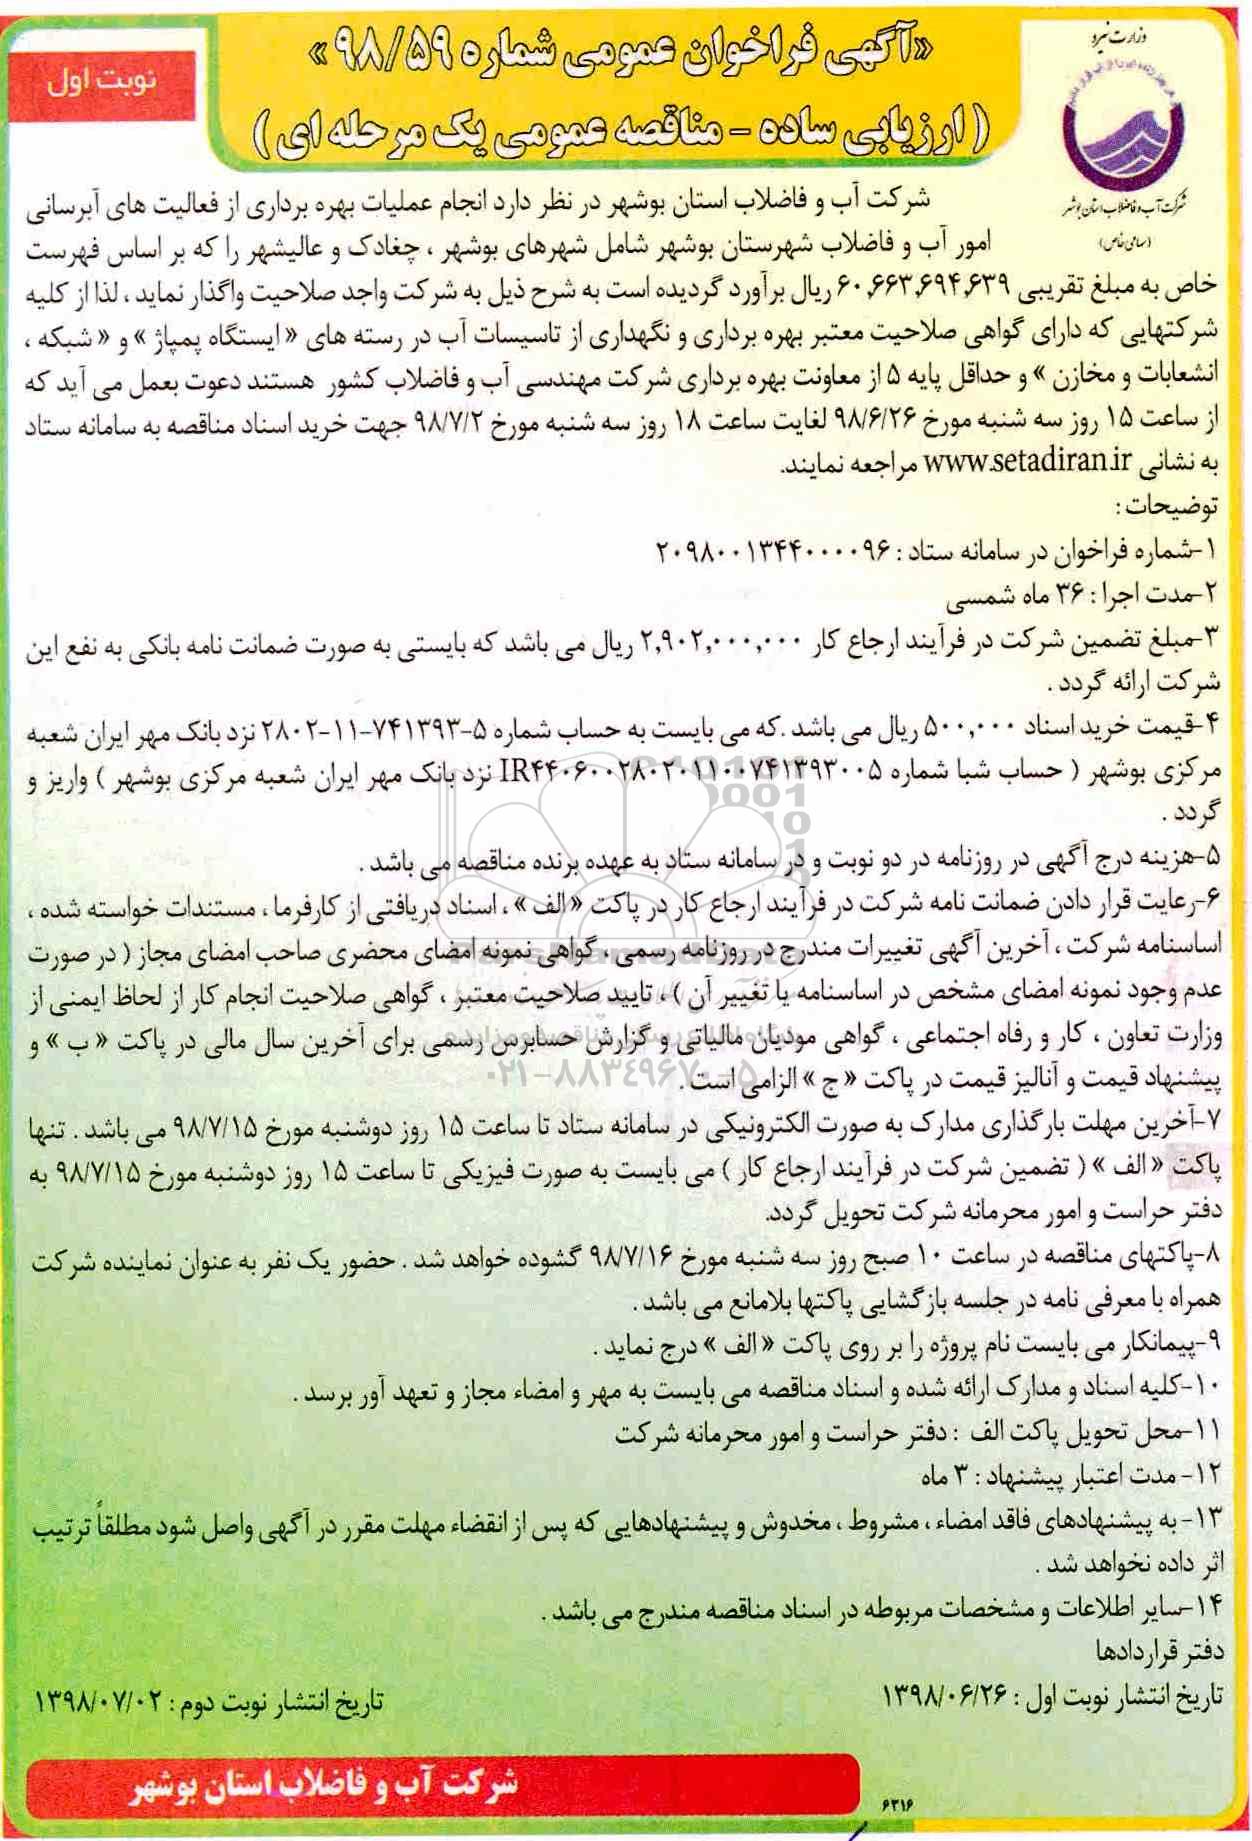 «آگهی فراخوان عمومی شماره ۹۸/۵۹»
(ارزیابی ساده - مناقصه عمومی یک مرحله ای)
نوبت اول
وزارت نیرو
شرکت آب و فاضلاب استان بوشهر
(سهامی خاص)
شرکت آب و فاضلاب استان بوشهر در نظر دارد انجام عملیات بهره برداری از فعالیت های آبرسانی
امور آب و فاضلاب شهرستان بوشهر شامل شهرهای بوشهر ، چغادک و عالیشهر را که بر اساس فهرست
خاص به مبلغ تقریبی ۶۰,۶۶۳,۶۹۴,۶۳۹ ریال برآورد گردیده است به شرح ذیل به شرکت واجد صلاحیت واگذار نماید ، لذا از کلیه
شرکتهایی که دارای گواهی صلاحیت معتبر بهره برداری و نگهداری از تاسیسات آب در رسته های « ایستگاه پمپاژ » و « شبکه ،
انشعابات و مخازن » و حداقل پایه ۵ از معاونت بهره برداری شرکت مهندسی آب و فاضلاب کشور هستند دعوت بعمل می آید که
از ساعت ۱۵ روز سه شنبه مورخ ۹۸/۶/۲۶ لغایت ساعت ۱۸ روز سه شنبه مورخ ۹۸/۷/۲ جهت خرید اسناد مناقصه به سامانه ستاد
به نشانی www.setadiran.ir مراجعه نمایند.
توضیحات :
۱-شماره فراخوان در سامانه ستاد : ۲۰۹۸۰۰۱۳۴۴۰۰۰۰۹۶
۲-مدت اجرا : ۳۶ ماه شمسی
۳-مبلغ تضمین شرکت در فرآیند ارجاع کار ۲,۹۰۲,۰۰۰,۰۰۰ ریال می باشد که بایستی به صورت ضمانت نامه بانکی به نفع این
شرکت ارائه گردد .
۴-قیمت خرید اسناد ۵۰۰,۰۰۰ ریال می باشد .که می بایست به حساب شماره ۵-۷۴۱۳۹۳-۱۱-۲۸۰۲ نزد بانک مهر ایران شعبه
مرکزی بوشهر ( حساب شبا شماره IR۴۴۰۶۰۰۲۸۰۲۰۱۱۰۰۷۴۱۳۹۳۰۰۵ نزد بانک مهر ایران شعبه مرکزی بوشهر ) واریز و
گردد .
۵-هزینه درج آگهی در روزنامه در دو نوبت و در سامانه ستاد به عهده برنده مناقصه می باشد .
۶-رعایت قرار دادن ضمانت نامه شرکت در فرآیند ارجاع کار در پاکت « الف » ، اسناد دریافتی از کارفرما ، مستندات خواسته شده ،
اساسنامه شرکت ، آخرین آگهی تغییرات مندرج در روزنامه رسمی ، گواهی نمونه امضای محضری صاحب امضای مجاز ( در صورت
عدم وجود نمونه امضای مشخص در اساسنامه یا تغییر آن ) ، تایید صلاحیت معتبر ، گواهی صلاحیت انجام کار از لحاظ ایمنی از
وزارت تعاون ، کار و رفاه اجتماعی ، گواهی مودیان مالیاتی و گزارش حسابرس رسمی برای آخرین سال مالی در پاکت « ب » و
پیشنهاد قیمت و آنالیز قیمت در پاکت « ج » الزامی است .
۰۲۱-۸۸۳۴۹۶۷۰-۵
۷-آخرین مهلت بارگذاری مدارک به صورت الکترونیکی در سامانه ستاد تا ساعت ۱۵ روز دوشنبه مورخ ۹۸/۷/۱۵ می باشد . تنها
پاکت « الف » ( تضمین شرکت در فرآیند ارجاع کار ) می بایست به صورت فیزیکی تا ساعت ۱۵ روز دوشنبه مورخ ۹۸/۷/۱۵ به
دفتر حراست و امور محرمانه شرکت تحویل گردد.
۸-پاکتهای مناقصه در ساعت ۱۰ صبح روز سه شنبه مورخ ۹۸/۷/۱۶ گشوده خواهد شد . حضور یک نفر به عنوان نماینده شرکت
همراه با معرفی نامه در جلسه بازگشایی پاکتها بلامانع می باشد .
۹-پیمانکار می بایست نام پروژه را بر روی پاکت « الف » درج نماید .
۱۰-کلیه اسناد و مدارک ارائه شده و اسناد مناقصه می بایست به مهر و امضاء مجاز و تعهد آور برسد .
۱۱-محل تحویل پاکت الف : دفتر حراست و امور محرمانه شرکت
۱۲- مدت اعتبار پیشنهاد : ۳ ماه
۱۳- به پیشنهادهای فاقد امضاء ، مشروط ، مخدوش و پیشنهادهایی که پس از انقضاء مهلت مقرر در آگهی واصل شود مطلقاً ترتیب
اثر داده نخواهد شد .
۱۴-سایر اطلاعات و مشخصات مربوطه در اسناد مناقصه مندرج می باشد .
دفتر قراردادها
تاریخ انتشار نوبت اول : ۱۳۹۸/۰۶/۲۶
تاریخ انتشار نوبت دوم : ۱۳۹۸/۰۷/۰۲
شرکت آب و فاضلاب استان بوشهر
۶۳۱۶